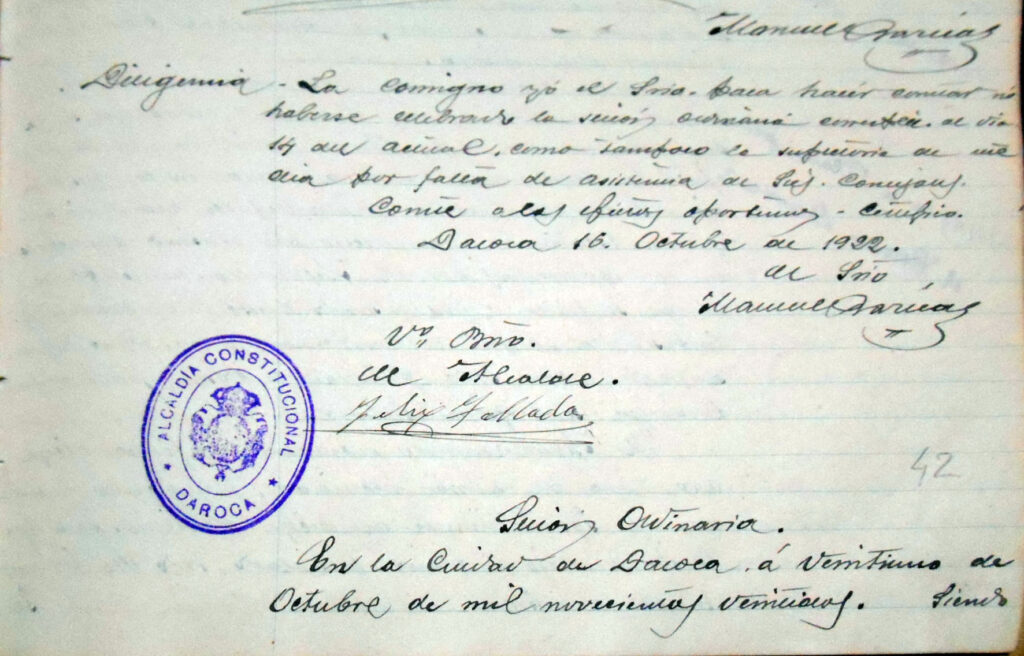 Manuel Garcías
Diligencia - La consigno yó el Srio. para hacer constar no
haberse celebrado la sesión ordinaria correste. al dia
14 del actual, como tampoco la supletoria de
dia por falta de asistencia de Srs. Concejales.
Conste a los efectos oportunos - certifico.
Daroca 16. Octubre de 1922.
el Srio
Manuel Garcías
Vº. Bño.
el Alcalde.
Felix
ALCALDÍA CONSTITUCIONAL
DAROCA
42
Sesión Ordinaria.
En la Ciudad de Daroca á veintiuno de
Octubre de mil novecientos veintidos. Siendo